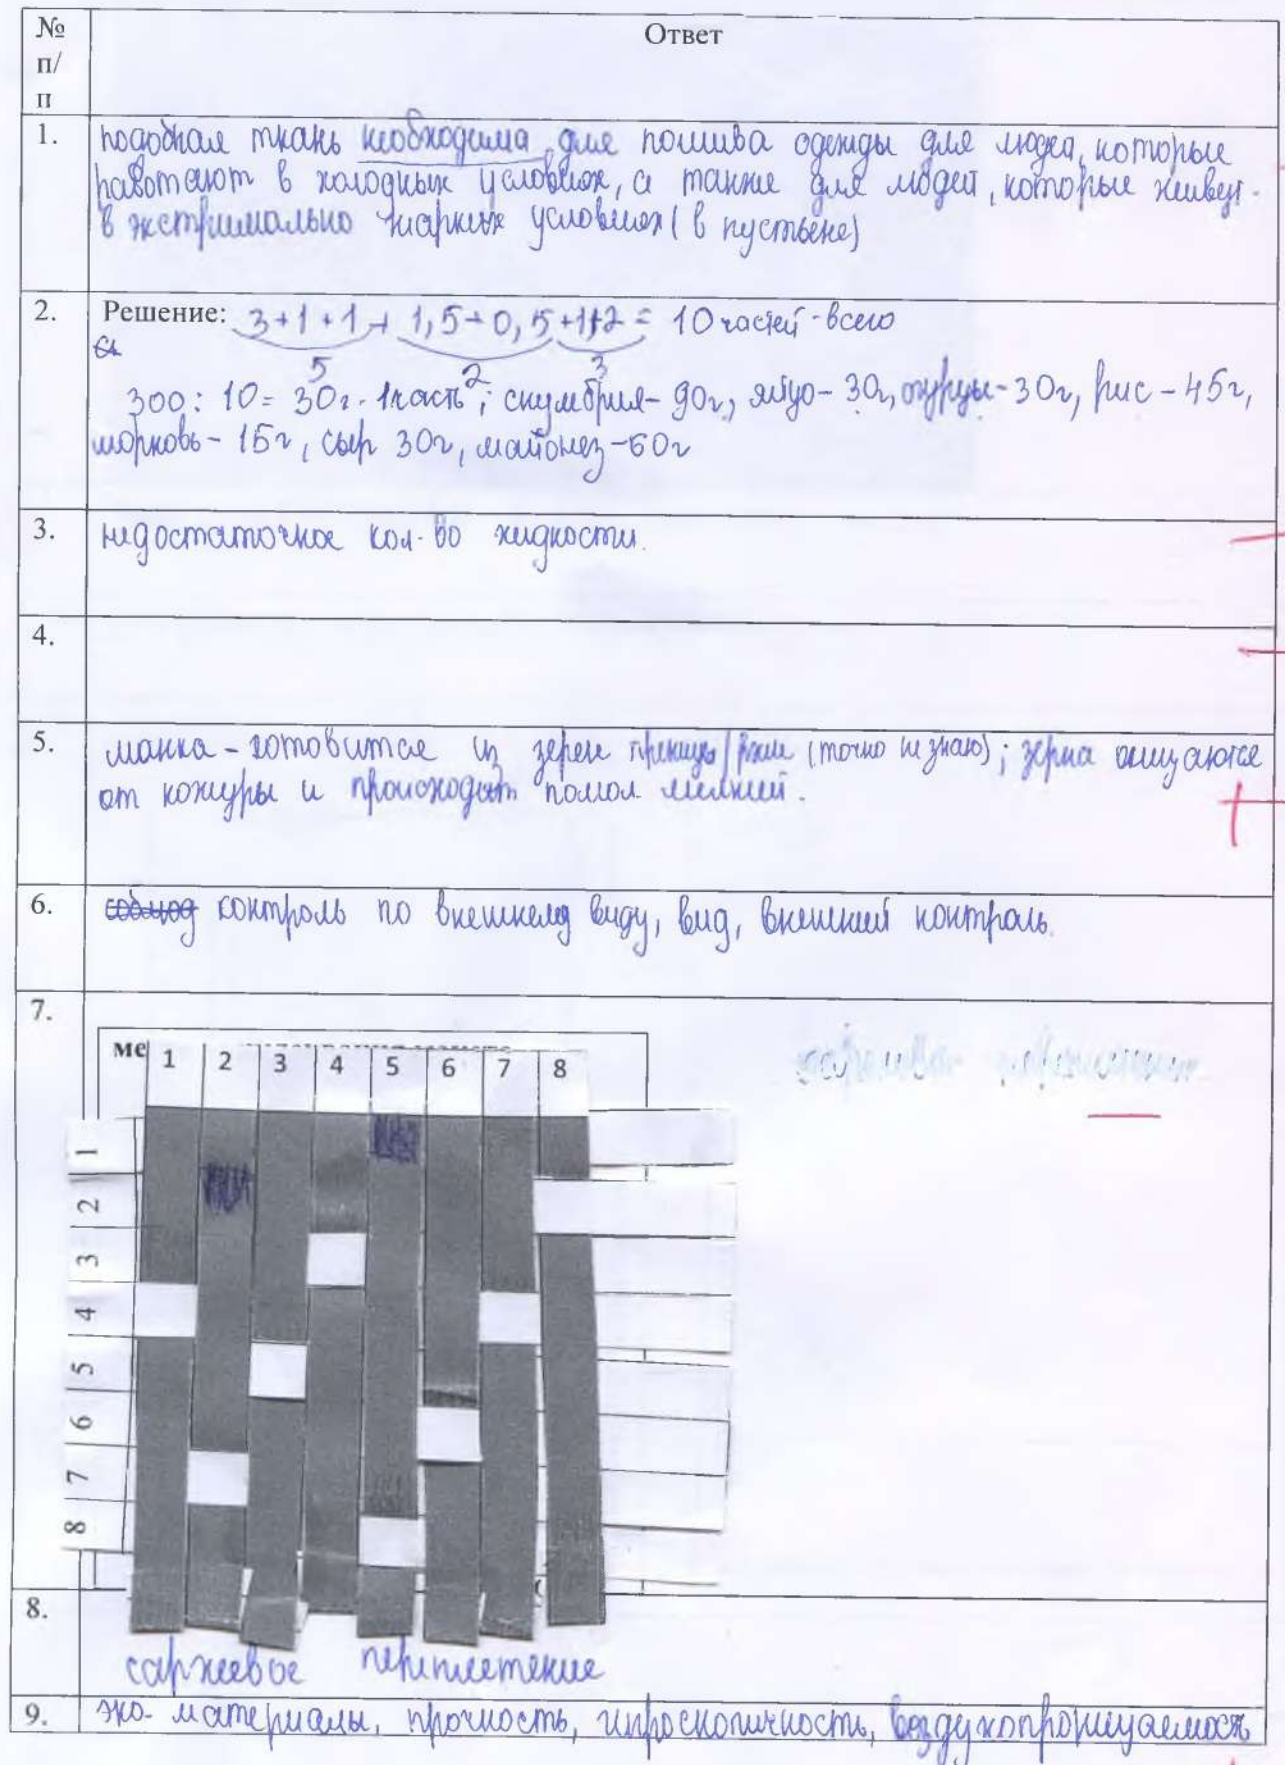 № п/п
Ответ
1.
подобная ткань необходима для пошива одежды для людей, которые
работают в холодных условиях, а также для людей, которые живут
в экстримально жарких условиях (в пустыне)
2.
Решение: 3+1+1+1,5+0,5+1+2= 10 частей - всего
5 2 3
300:10= 30г. - 1часть; скумбрия- 90г, яйцо- 30г, огурцы- 30г, рис - 45г,
морковь- 15г, сыр 30г, майонез-60г
3.
недостаточное кол-во жидкости.
4.
5.
манка - готовится из зерен пшеницы/ржи (точно не знаю); зерна очищаются
от кожуры и происходит помол мелкий.
6.
соблюд контроль по внешнему виду, вид, внешний контроль.
7.
ме
1 2 3 4 5 6 7 8
1
2
3
4
5
6
7
8
8.
саржевое переплетение
9.
эко-материалы, прочность, гироскопичность, воздухопроницаемость